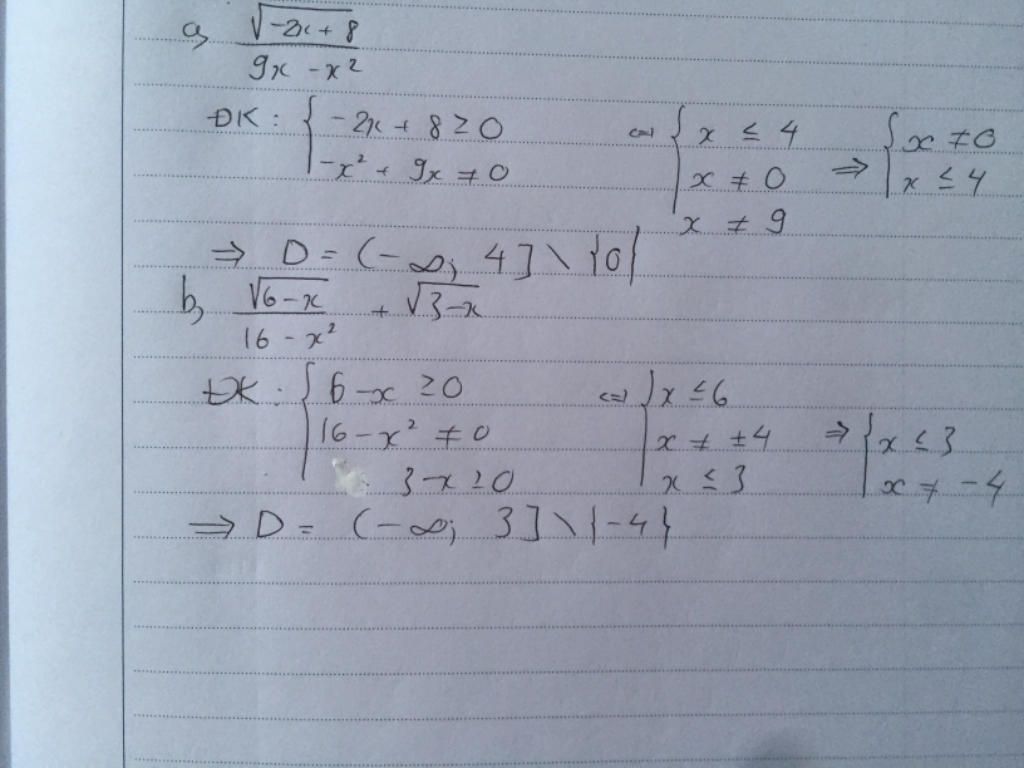 a, √(-2x + 8) / (9x - x²)
ĐK : { -2x + 8 ≥ 0 ; -x² + 9x ≠ 0 <=> { x ≤ 4 ; x ≠ 0 ; x ≠ 9 => { x ≠ 0 ; x ≤ 4
=> D = (-∞; 4] \ {0}
b, √(6-x) / (16 - x²) + √(3-x)
ĐK : { 6-x ≥ 0 ; 16 - x² ≠ 0 ; 3-x ≥ 0 <=> { x ≤ 6 ; x ≠ ±4 ; x ≤ 3 => { x ≤ 3 ; x ≠ -4
=> D = (-∞; 3] \ {-4}